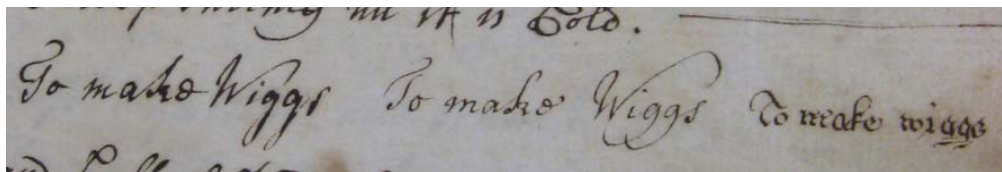 till it is Cold.
To make Wiggs To make Wiggs To make wiggs